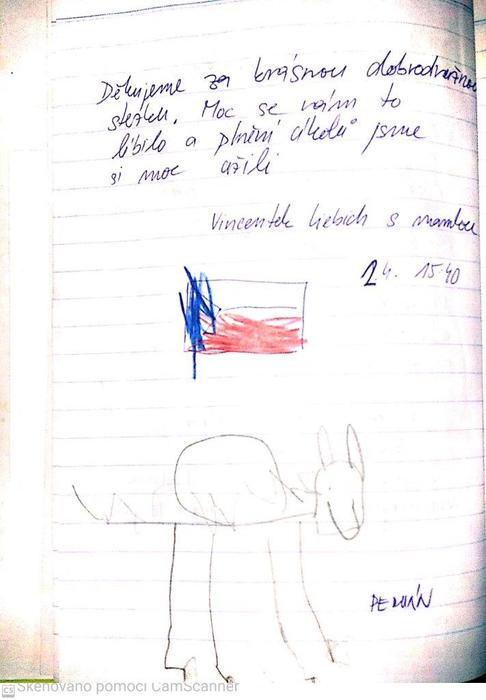 Děkujeme za krásnou dobrodružnou
stezku. Moc se nám to
líbilo a plnění úkolů jsme
si moc užili
Vincentek Liebich s maminkou
24. 15:40
CS Skenováno pomocí CamScanner